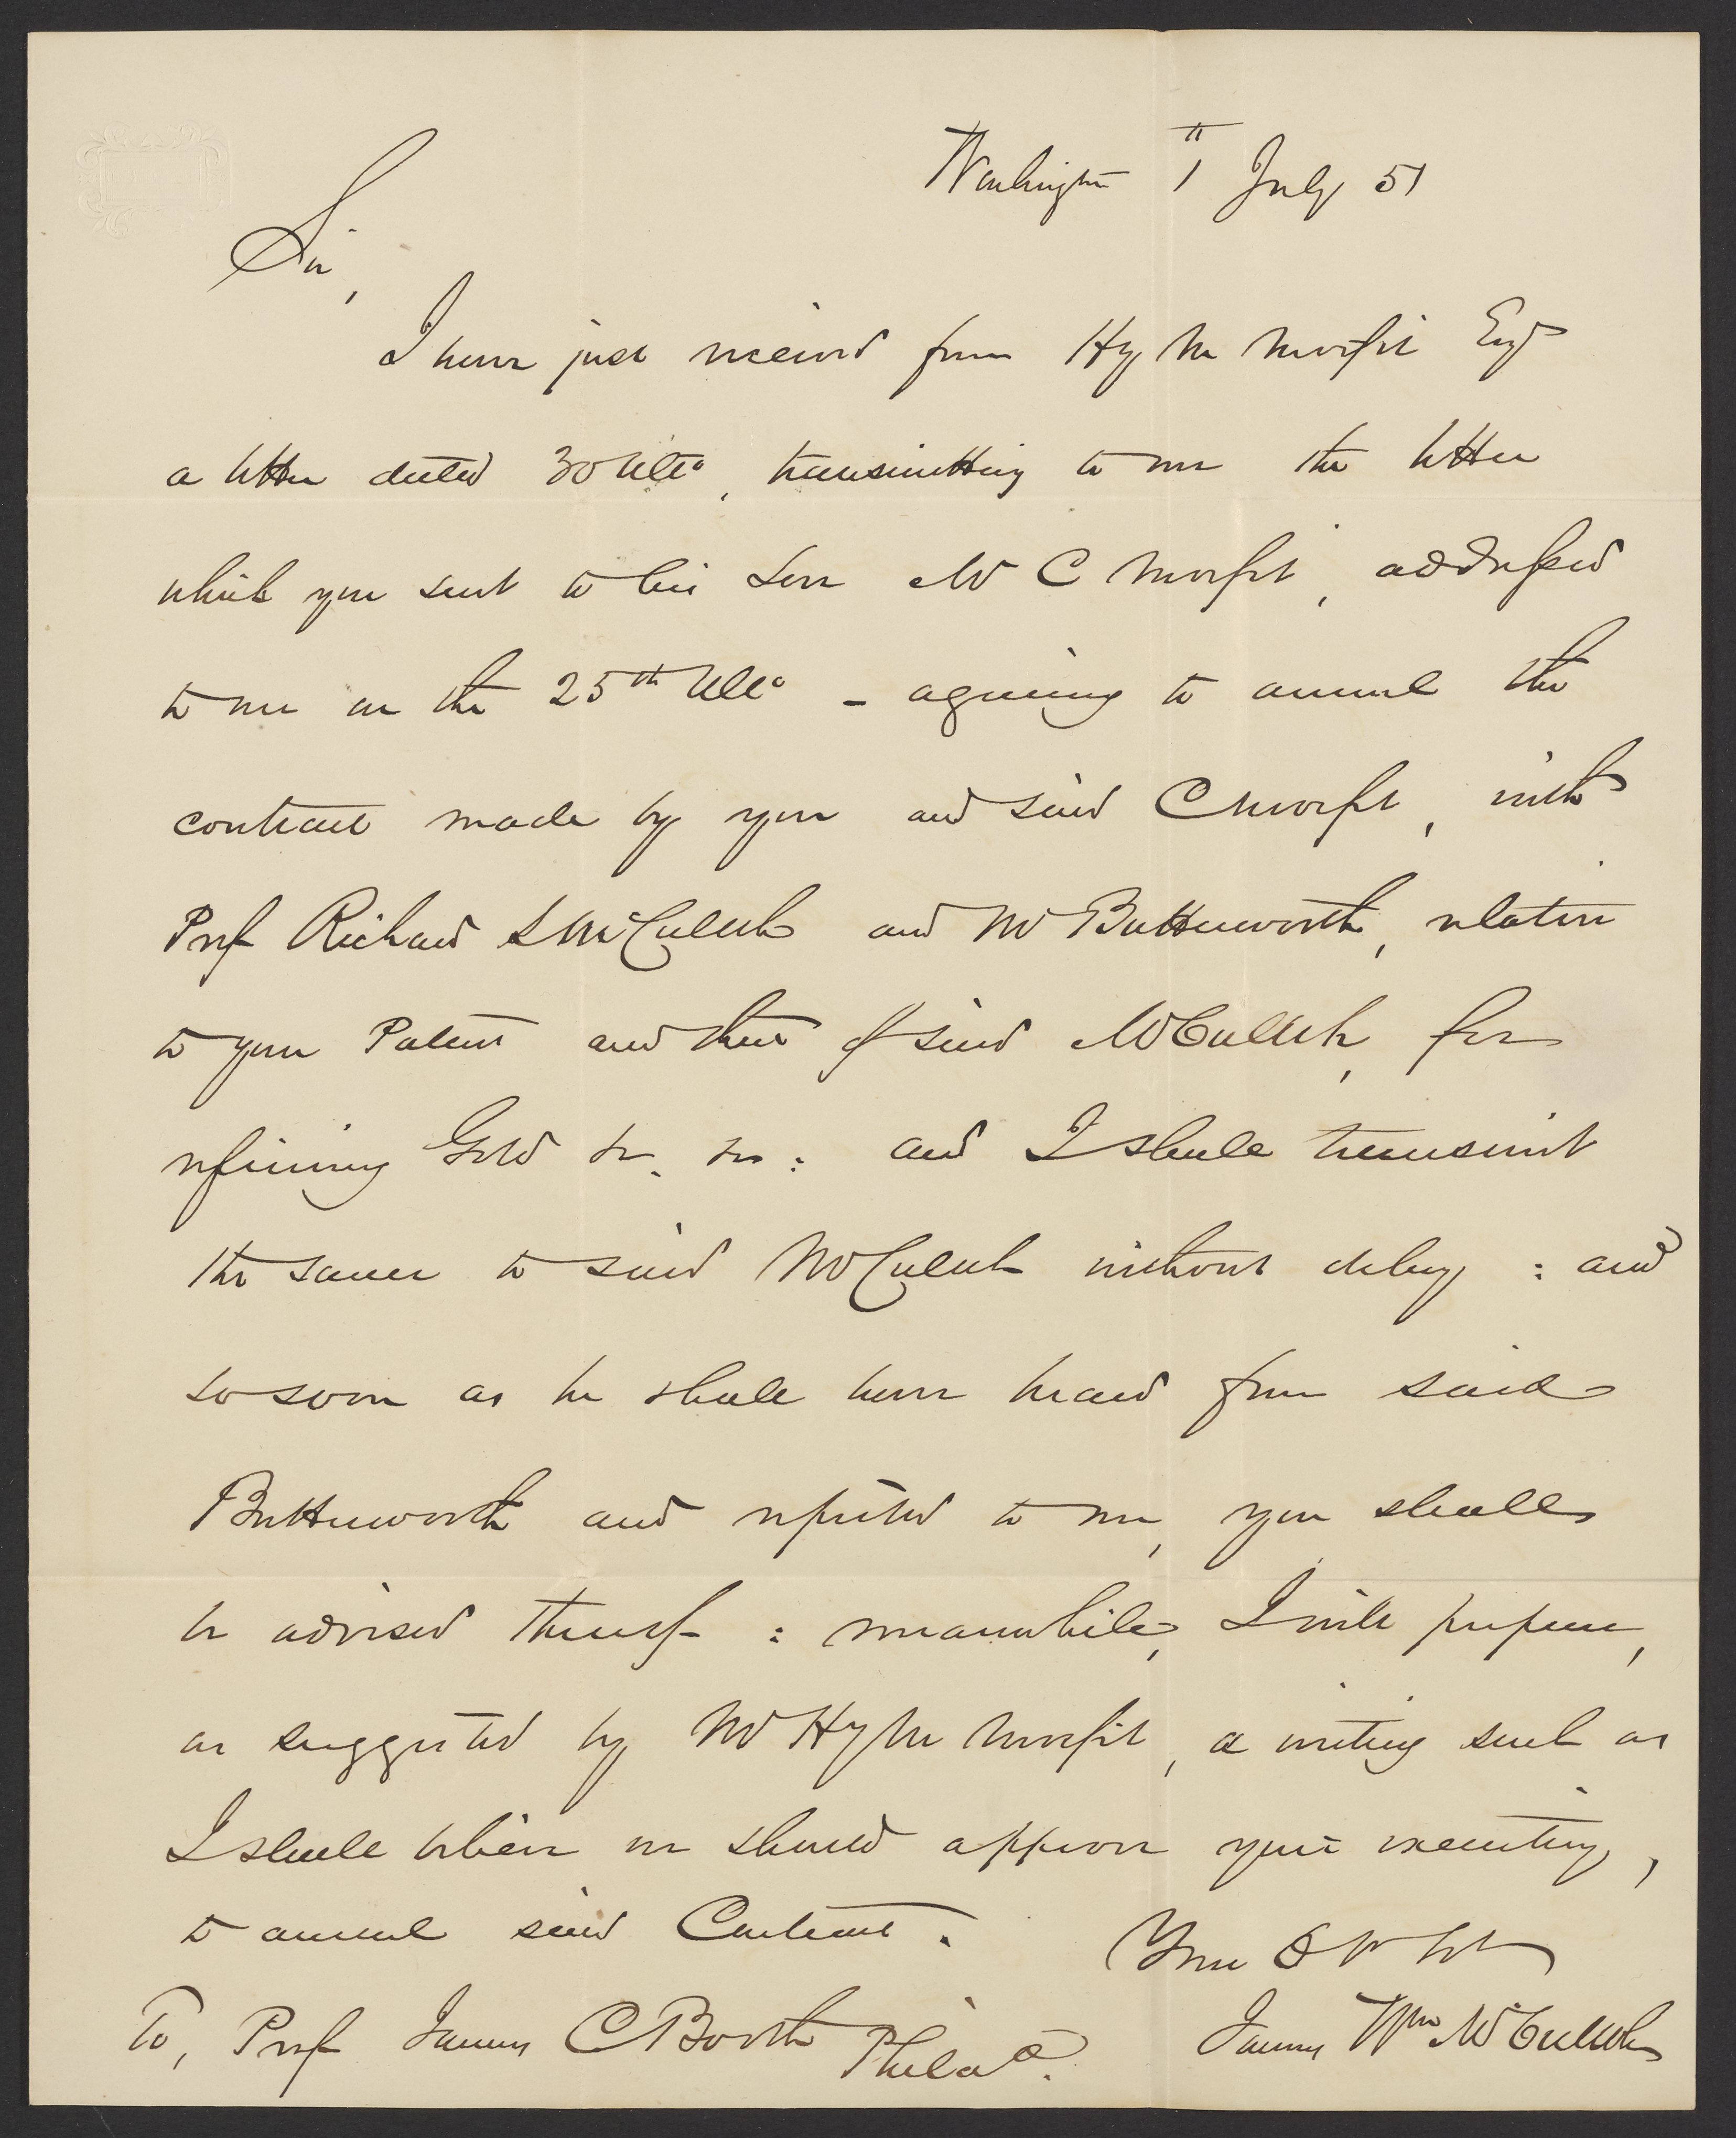 Washington 1st July 51
Sir,
I have just received from Hy M Morfit Esq
a letter dated 30 Ulto, transmitting to me the letter
which you sent to his son Mr C Morfit, addressed
to me on the 25th Ulto - agreeing to annul the
contract made by you and said C Morfit, with
Prof Richard S McCulloh and Mr Butterworth, relative
to your Patent and that of said McCulloh, for
refining Gold &c. &c: and I shall transmit
the same to said McCulloh without delay: and
so soon as he shall have heard from said
Butterworth and reported to me, you shall
be advised thereof: meanwhile, I will prepare,
as suggested by Mr Hy M Morfit, a writing such as
I shall believe we should approve your executing,
to annul said Contract.
Your Obt
To, Prof James C Booth Philada.
James Wm McCulloh